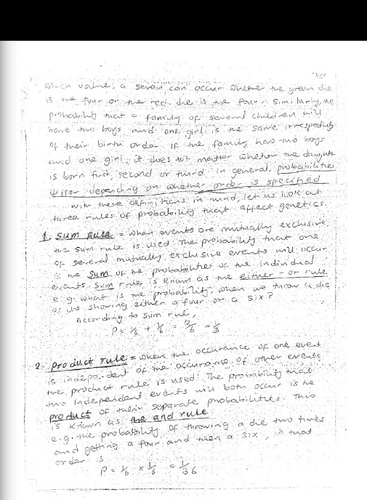 which value; a seven can occur whether the green die
is the four or the red die is the four. Similarly, the
probability that a family of several children will
have two boys and one girl is the same irrespectively
of their birth order. If the family has two boys
and one girl, it does not matter whether the daughter
is born first, second or third. In general, probabilities
differ depending on whether order is specified
with these definitions in mind, let us look at
three rules of probability that affect genetics.
1. Sum Rule = when events are mutually exclusive,
the sum rule is used. The probability that one
of several mutually exclusive events will occur
is the sum of the probabilities of the individual
events. Sum rule is known as the either-or rule
e.g. what is the probability, when we throw a die
of its showing either a four or a six?
According to sum rule,
P = 1/6 + 1/6 = 2/6 = 1/3
2. product rule = when the occurance of one event
is independent of the occurance of other events,
the product rule is used. The probability that
two independent events will both occur is the
product of their separate probabilities. This
is known as the and rule
e.g. the probability of throwing a die two times
and getting a four and then a six, in that
order is
P = 1/6 x 1/6 = 1/36